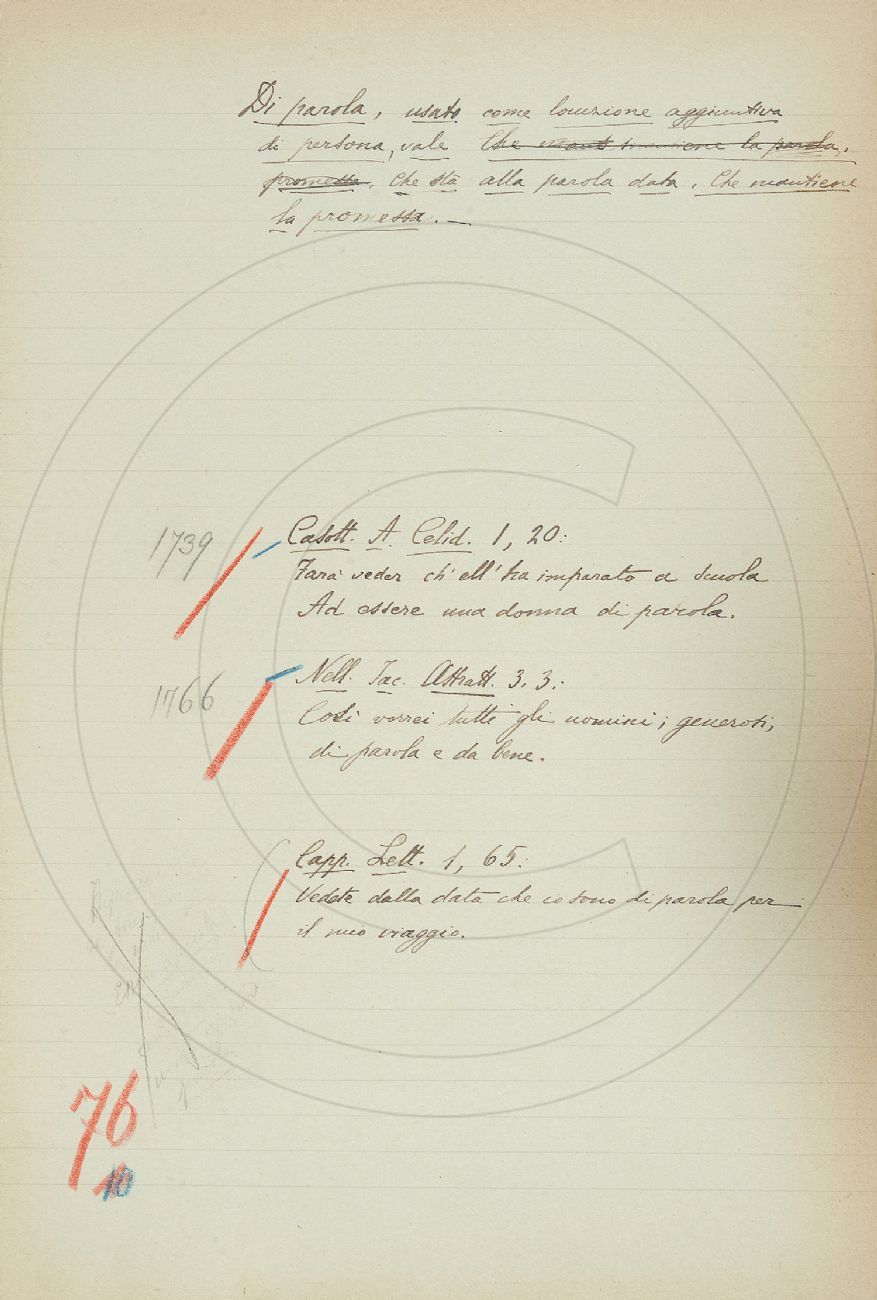 Di parola, usato come locuzione aggiuntiva
di persona, vale Che mant mantiene la parola,
promessa. Che sta alla parola data, Che mantiene
la promessa. —
1739
Casott. A. Celid. 1, 20:
Farà veder ch'ell'ha imparato a scuola
Ad essere una donna di parola.
1766
Nell. Jac. Attratt. 3. 3.:
Così vorrei tutti gli uomini; generosi,
di parola e da bene.
Capp. Lett. 1, 65:
Vedete dalla data che io sono di parola per
il mio viaggio.
76
10